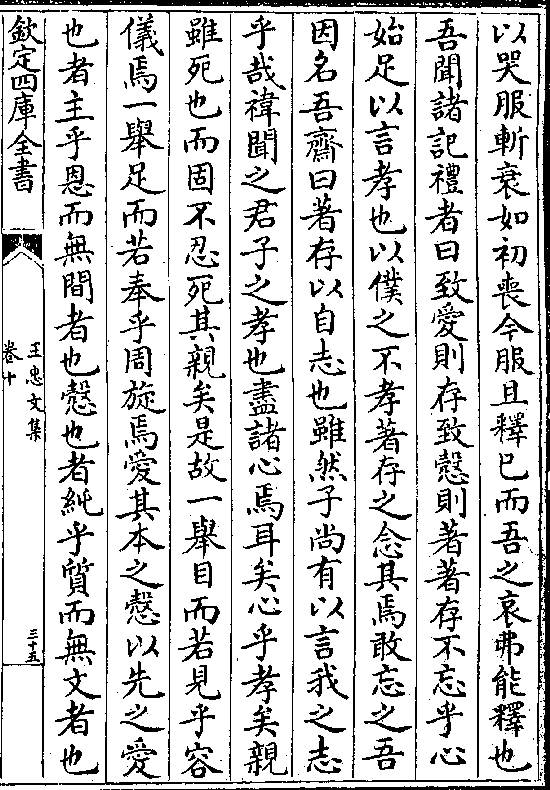 以哭服斬衰如初喪今服且釋已而吾之哀弗能釋也
吾聞諸記禮者曰致愛則存致慤則著著存不忘乎心
始足以言孝也以僕之不孝著存之念其焉敢忘之吾
因名吾齋曰著存以自志也雖然子尚有以言我之志
乎哉禕聞之君子之孝也盡諸心焉耳矣心乎孝矣親
雖死也而固不忍死其親矣是故一舉目而若見乎容
儀焉一舉足而若奉乎周旋焉愛其本之慤以先之愛
也者主乎恩而無間者也慤也者純乎質而無文者也
欽定四庫全書
王忠文集
卷十
三十五